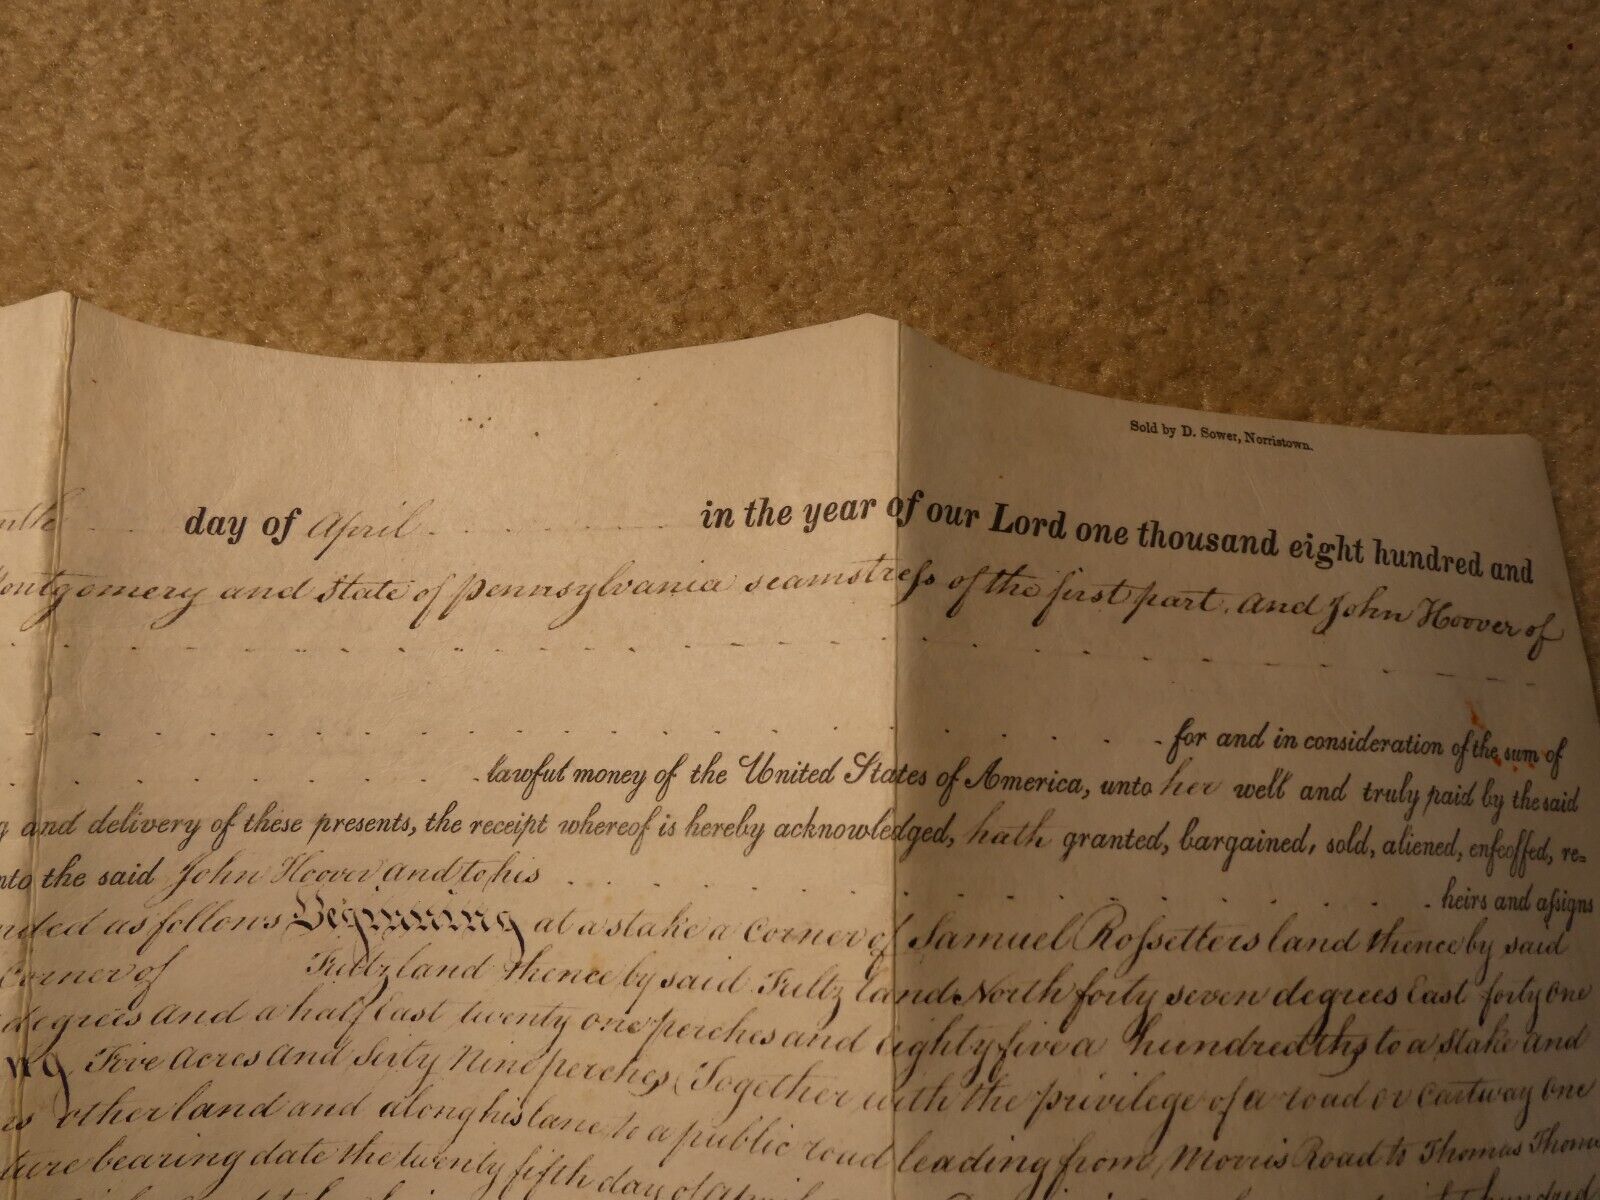 Sold by D. Sower, Norristown.
day of April in the year of our Lord one thousand eight hundred and
ontgomery and State of Pennsylvania seamstress of the first part, and John Hoover of
for and in consideration of the sum of
lawful money of the United States of America, unto her well and truly paid by the said
g and delivery of these presents, the receipt whereof is hereby acknowledged, hath granted, bargained, sold, aliened, enfeoffed, re=
nto the said John Hoover and to his heirs and assigns
nded as follows Beginning at a stake a corner of Samuel Rossetters land thence by said
Corner of Fultz land thence by said Fultz land North forty seven degrees East forty one
degrees and a half East twenty one perches and eighty five a hundredths to a Stake and
ng Five Acres and Sixty Nine perches (Together with the privilege of a road or Cartway One
is other land and along his lane to a public road leading from Morris Road to Thomas Thom
ture bearing date the twenty fifth day of April
hundred